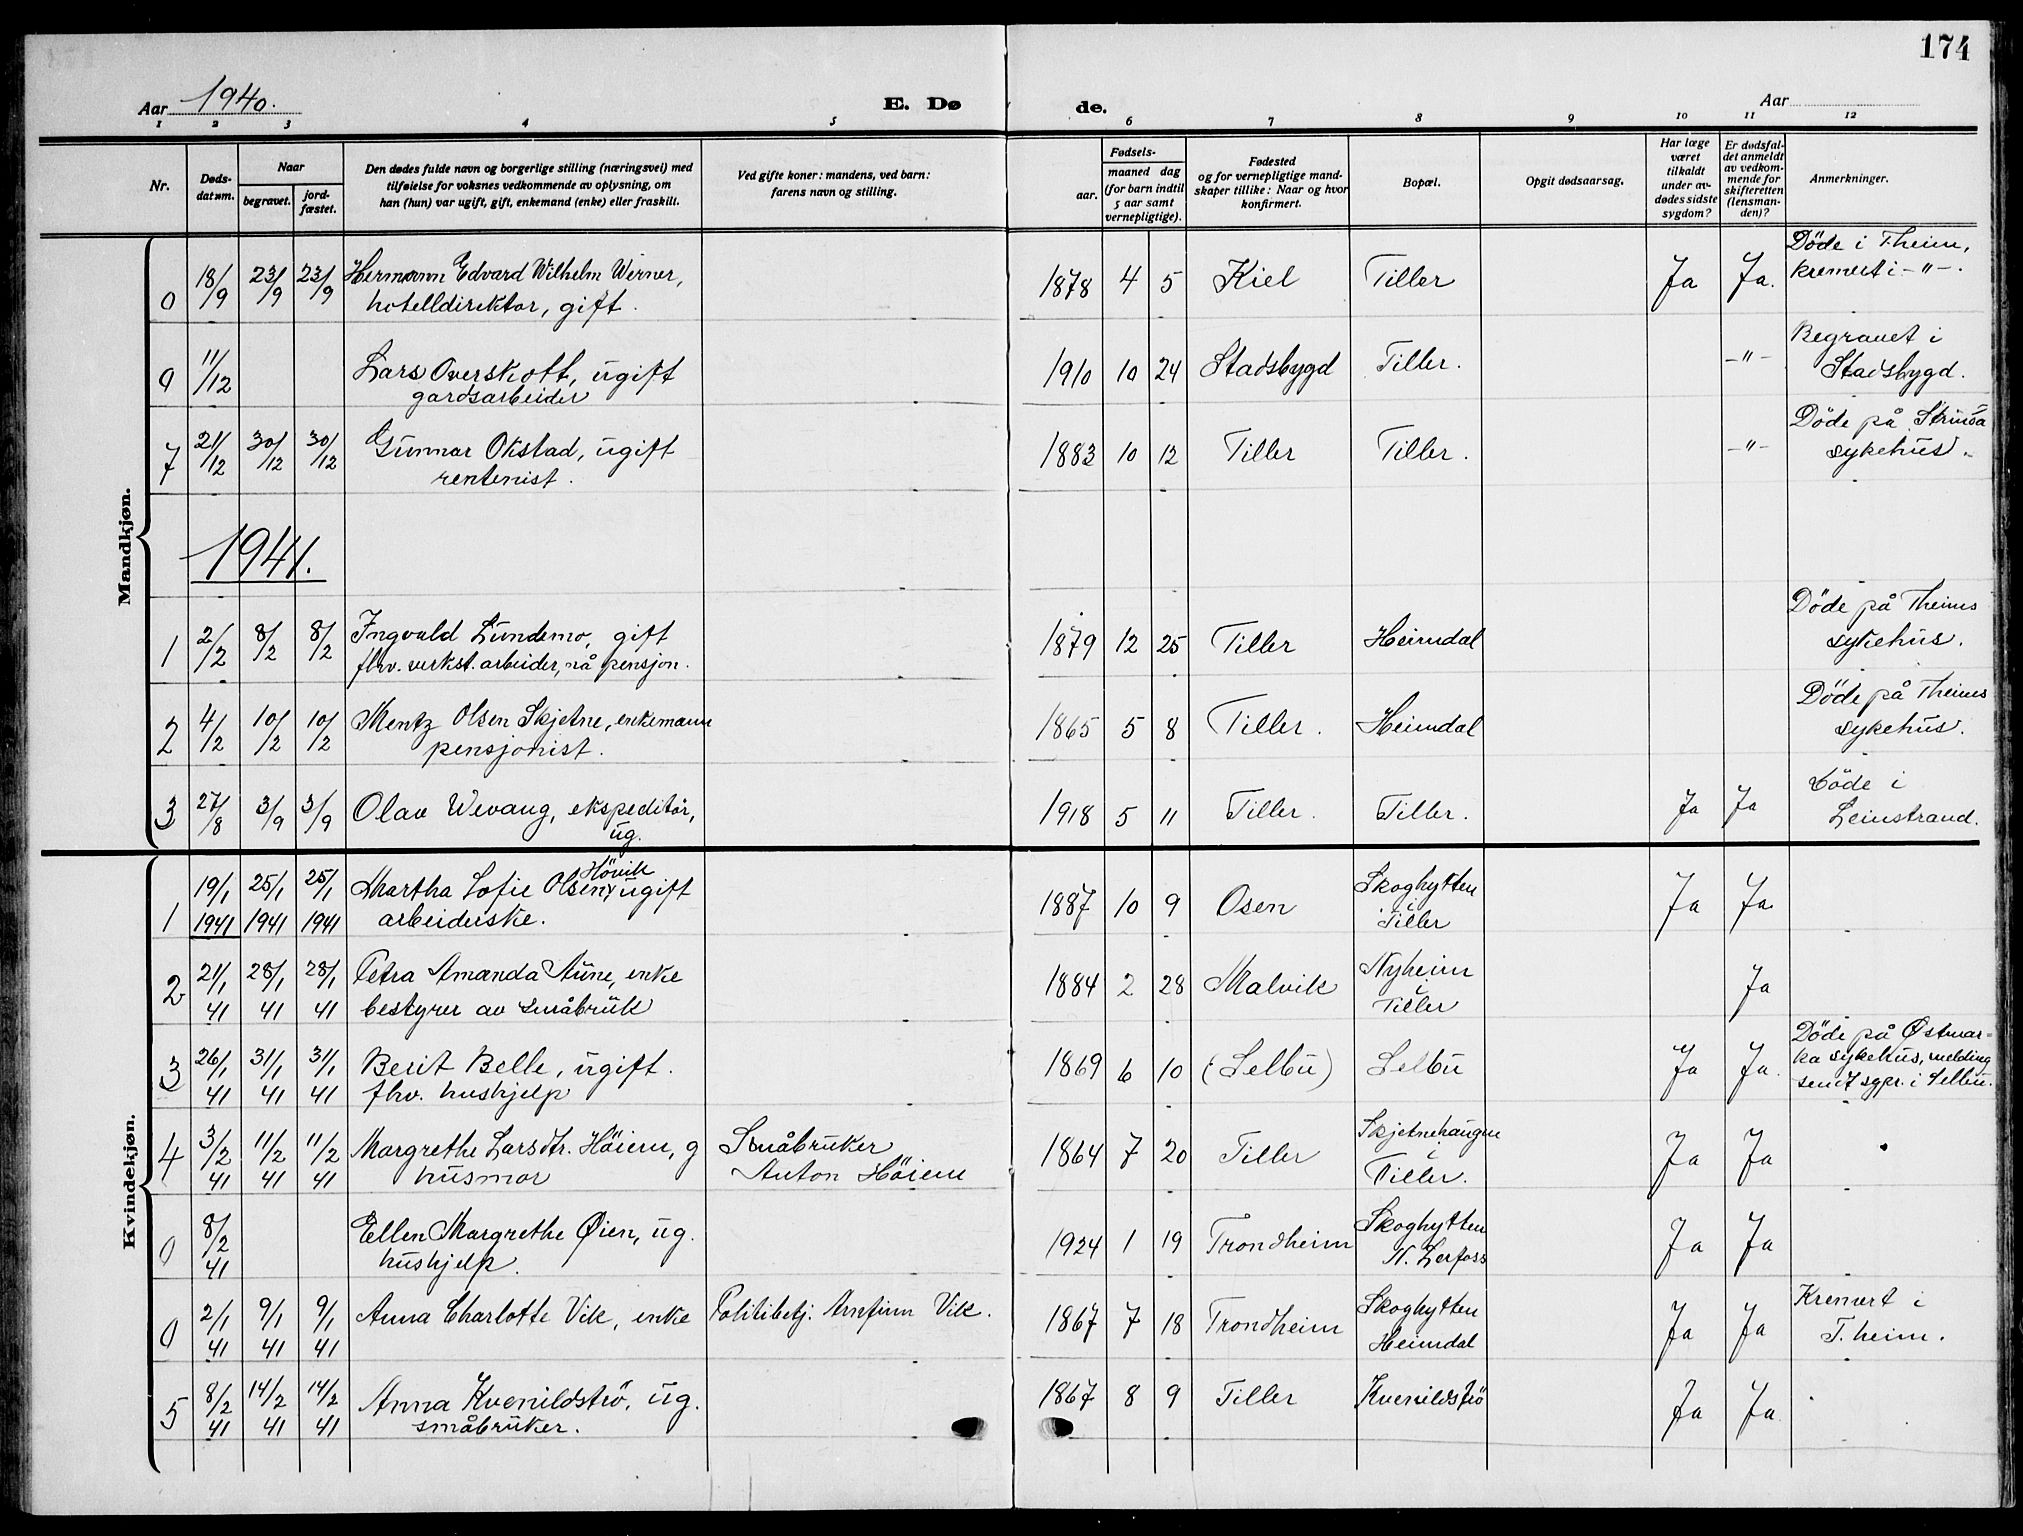 174
Aar 1940.
E. Dø de.
Aar
1 2 3 4 5 6 7 8 9 10 11 12
Nr.
Døds-
datum.
Naar
begravet.
jord-
fæstet.
Den dødes fulde navn og borgerlige stilling (næringsvei) med
tilføielse for voksnes vedkommende av oplysning, om
han (hun) var ugift, gift, enkemand (enke) eller fraskilt.
Ved gifte koner: mandens, ved barn:
farens navn og stilling.
Fødsels-
aar.
maaned dag
(for barn indtil
5 aar samt
vernepligtige).
Fødested
og for vernepligtige mand-
skaper tillike: Naar og hvor
konfirmert.
Bopæl.
Opgit dødsaarsag.
Har læge
været
tilkaldt
under av-
dødes sidste
sygdom?
Er dødsfal-
det anmeldt
av vedkom-
mende for
skifteretten
(lensman-
den)?
Anmerkninger.
Mandkjøn.
0 18/9 23/9 23/9 Hermann Edvard Wilhelm Werner, 1878 4 5 Kiel Tiller Ja Ja. Döde i T.heim,
hotelldirektør, gift. kremert i -"-.
0 11/12 Lars Overskott, ugift 1910 10 24 Stadsbygd Tiller. -"- Begravet i
gardsarbeider Stadsbygd.
7 21/12 30/12 30/12 Gunnar Okstad, ugift 1883 10 12 Tiller Tiller. -"- Döde på Strinda
rentenist. sykehus.
1941.
1 2/2 8/2 8/2 Ingvald Lundemo, gift 1879 12 25 Tiller Heimdal Döde på Theims
fhv. verkst. arbeider, nå pensjon. sykehus.
2 4/2 10/2 10/2 Mentz Olsen Skjetne, enkemann 1865 5 8 Tiller. Heimdal Döde på Theims
pensjonist. sykehus.
3 27/8 3/9 3/9 Olav Wevang, ekspeditör, 1918 5 11 Tiller. Tiller. Ja Ja Döde i
ug. Leinstrand.
Kvindekjøn.
Hövik
1 19/1 25/1 25/1 Martha Sofie Olsen, ugift 1887 10 9 Osen Skoghytten Ja Ja
1941 1941 1941 arbeiderske. i Tiller
2 21/1 28/1 28/1 Petra Amanda Aune, enke 1884 2 28 Malvik Nyheim Ja
41 41 41 bestyrer av småbruk i Tiller
3 26/1 31/1 31/1 Berit Belle, ugift. 1869 6 10 (Selbu) Selbu Ja Ja. Döde på Østmar-
41 41 41 fhv. hushjelp ka sykehus, melding
sendt sgpr. i Selbu.
4 3/2 11/2 11/2 Margrethe Larsdtr. Höiem, g Småbruker 1864 7 20 Tiller Skjetnehaugen Ja Ja
41 41 41 husmor Anton Höiem i Tiller.
0 8/2 Ellen Margrethe Øien, ug. 1924 1 19 Trondheim Skoghytten Ja Ja
41 hushjelp. N. Lerfoss
0 2/1 9/1 9/1 Anna Charlotte Vik, enke Politibetj. Arnfinn Vik. 1867 7 18 Trondheim Skoghytten Ja Ja Kremert i
41 41 41 Heimdal T.heim.
5 8/2 14/2 14/2 Anna Kvenildströ, ug. 1867 8 9 Tiller Kvenildströ Ja Ja
41 41 41 småbruker.